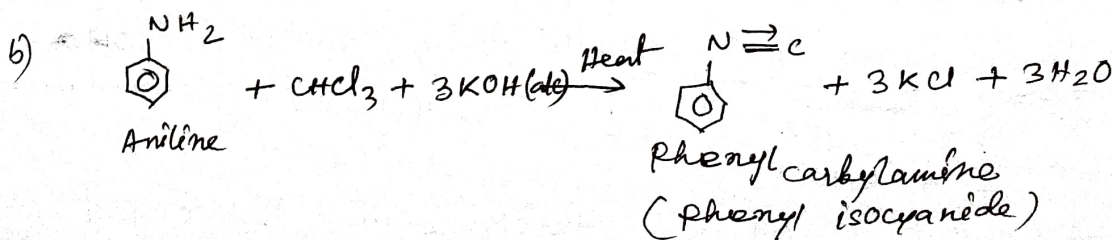 b)
NH2
+ CHCl3 + 3KOH(alc) Heat → N≡C + 3KCl + 3H2O
Aniline
Phenyl carbylamine
(phenyl isocyanide)